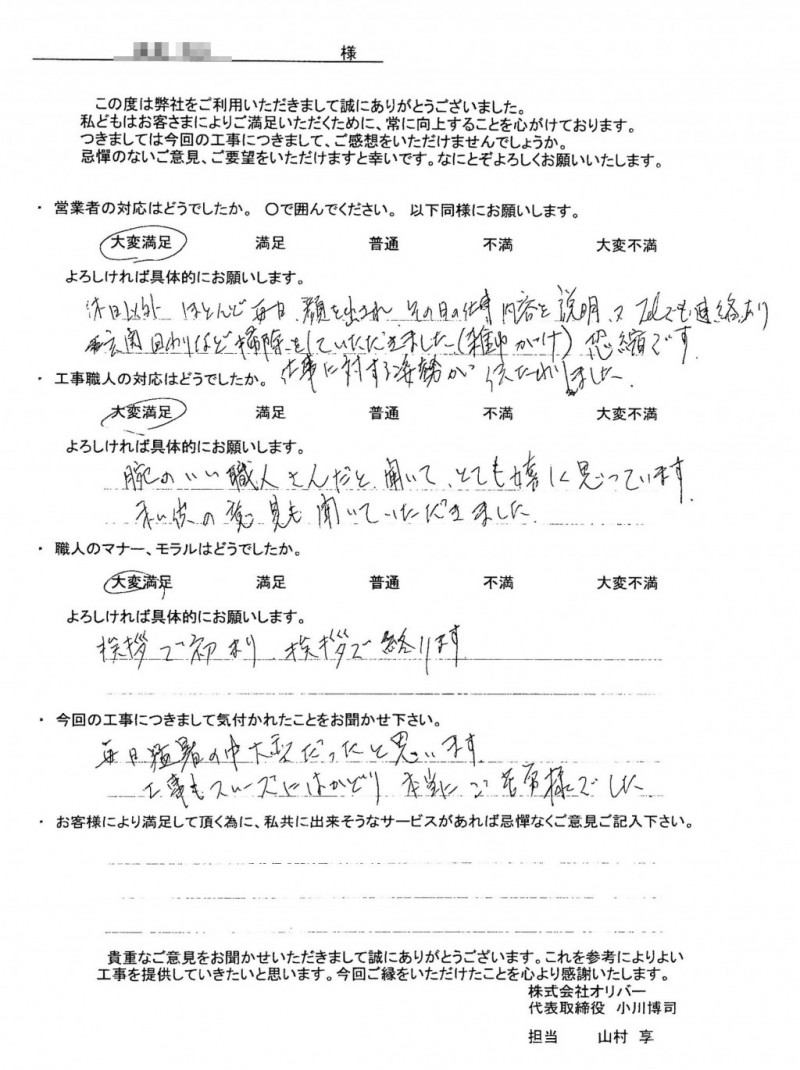 様
この度は弊社をご利用いただきまして誠にありがとうございました。
私どもはお客さまによりご満足いただくために、常に向上することを心がけております。
つきましては今回の工事につきまして、ご感想をいただけませんでしょうか。
忌憚のないご意見、ご要望をいただけますと幸いです。なにとぞよろしくお願いいたします。
・ 営業者の対応はどうでしたか。 〇で囲んでください。 以下同様にお願いします。
大変満足 満足 普通 不満 大変不満
よろしければ具体的にお願いします。
休日以外 ほとんど毎日、顔を出され その日の仕事 内容を 説明、又 Telでも連絡あり
玄関回わりなど掃除をしていただきました(雑巾がけ) 恐縮です
仕事に対する姿勢が 伝わりました.
・ 工事職人の対応はどうでしたか。
大変満足 満足 普通 不満 大変不満
よろしければ具体的にお願いします。
腕のいい職人さんだと 聞いて、とても嬉しく思っています
私の意見も聞いていただきました
・ 職人のマナー、モラルはどうでしたか。
大変満足 満足 普通 不満 大変不満
よろしければ具体的にお願いします。
挨拶で初まり、挨拶で終ります
・ 今回の工事につきまして気付かれたことをお聞かせ下さい。
毎日猛暑の中大変だったと思います.
工事もスムーズにはかどり 本当にご苦労様でした
・ お客様により満足して頂く為に、私共に出来そうなサービスがあれば忌憚なくご意見ご記入下さい。
貴重なご意見をお聞かせいただきまして誠にありがとうございます。これを参考によりよい
工事を提供していきたいと思います。今回ご縁をいただけたことを心より感謝いたします。
株式会社オリバー
代表取締役 小川博司
担当 山村 享